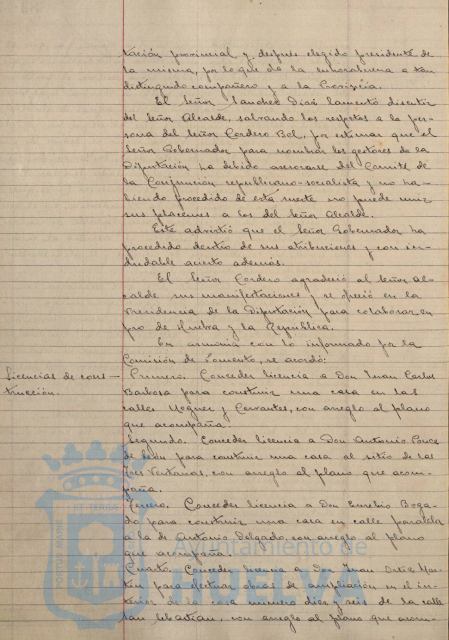 tación provincial y después elegido presidente de
la misma, por lo que da la enhorabuena a tan
distinguido compañero y a la Provincia.
El Señor Sanchez Diaz lamentó disentir
del Señor Alcalde, salvando los respetos a la per-
sona del Señor Cordero Bel, por estimar que el
Señor Gobernador para nombrar los gestores de la
Diputación ha debido asesorarse del Comité de
la Conjunción republicano-socialista y no ha-
biendo procedido de esta suerte no puede unir
sus plácemes a los del Señor Alcalde.
Este advirtió que el Señor Gobernador ha
procedido dentro de sus atribuciones y con in-
dudable acierto además.
El Señor Cordero agradeció al Señor Al-
calde sus manifestaciones y se ofreció en la
Presidencia de la Diputación para colaborar en
pro de Huelva y la República.
En armonía con lo informado por la
Comisión de Fomento, se acordó:
Licencias de cons-
trucción.
Primero. Conceder licencia a Don Juan Carlos
Barbosa para construir una casa en las
calles Moguer y Cervantes, con arreglo al plano
que acompaña.
Segundo. Conceder licencia a Don Antonio Ponce
de León para construir una casa al sitio de las
Tres Ventanas, con arreglo al plano que acom-
paña.
Tercero. Conceder licencia a Don Eusebio Boga-
do para construir una casa en calle paralela
a la de Antonio Delgado, con arreglo al plano
que acompaña.
Cuarto. Conceder licencia a Don Juan Ortiz Mar-
tin para efectuar obras de ampliación en el in-
terior de la casa número diez y seis de la calle
San Sebastian, con arreglo al plano que acom-
PORTUS MARIS
ET TERRAE
Ayuntamiento de
HUELVA